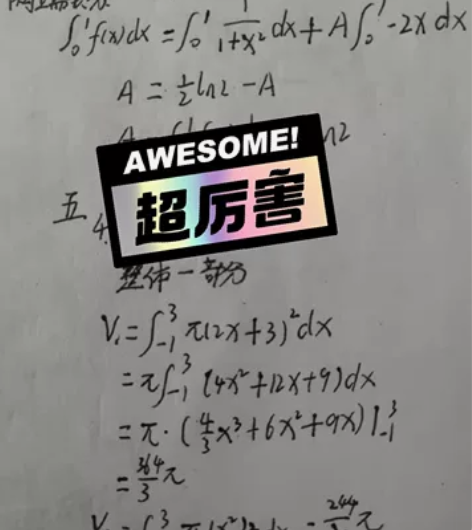 ∫₀¹f(x)dx = ∫₀¹ 1/(1+x²) dx + A∫₀¹ -2x dx
A = ½ln2 - A
AWESOME!
超厉害
五
4.
整体一部分
V₁ = ∫₋₁³ π(2x+3)²dx
= π∫₋₁³ (4x²+12x+9)dx
= π·(4/3x³+6x²+9x)|₋₁³
= 364/3 π